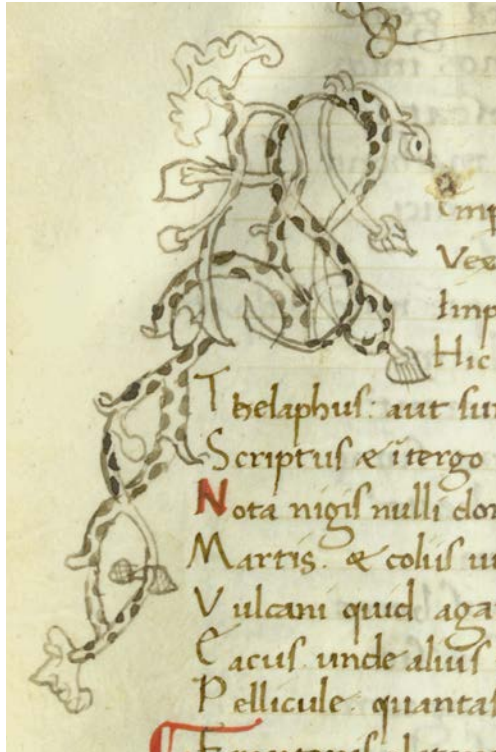 emp
Vex
Imp
Hic
Thelaphus: aut sum
Scriptus & itergo
Nota nigis nulli dom
Martis. & colus ui
Vulcani quid aga
Cacus unde alius
Pellicule. quantas